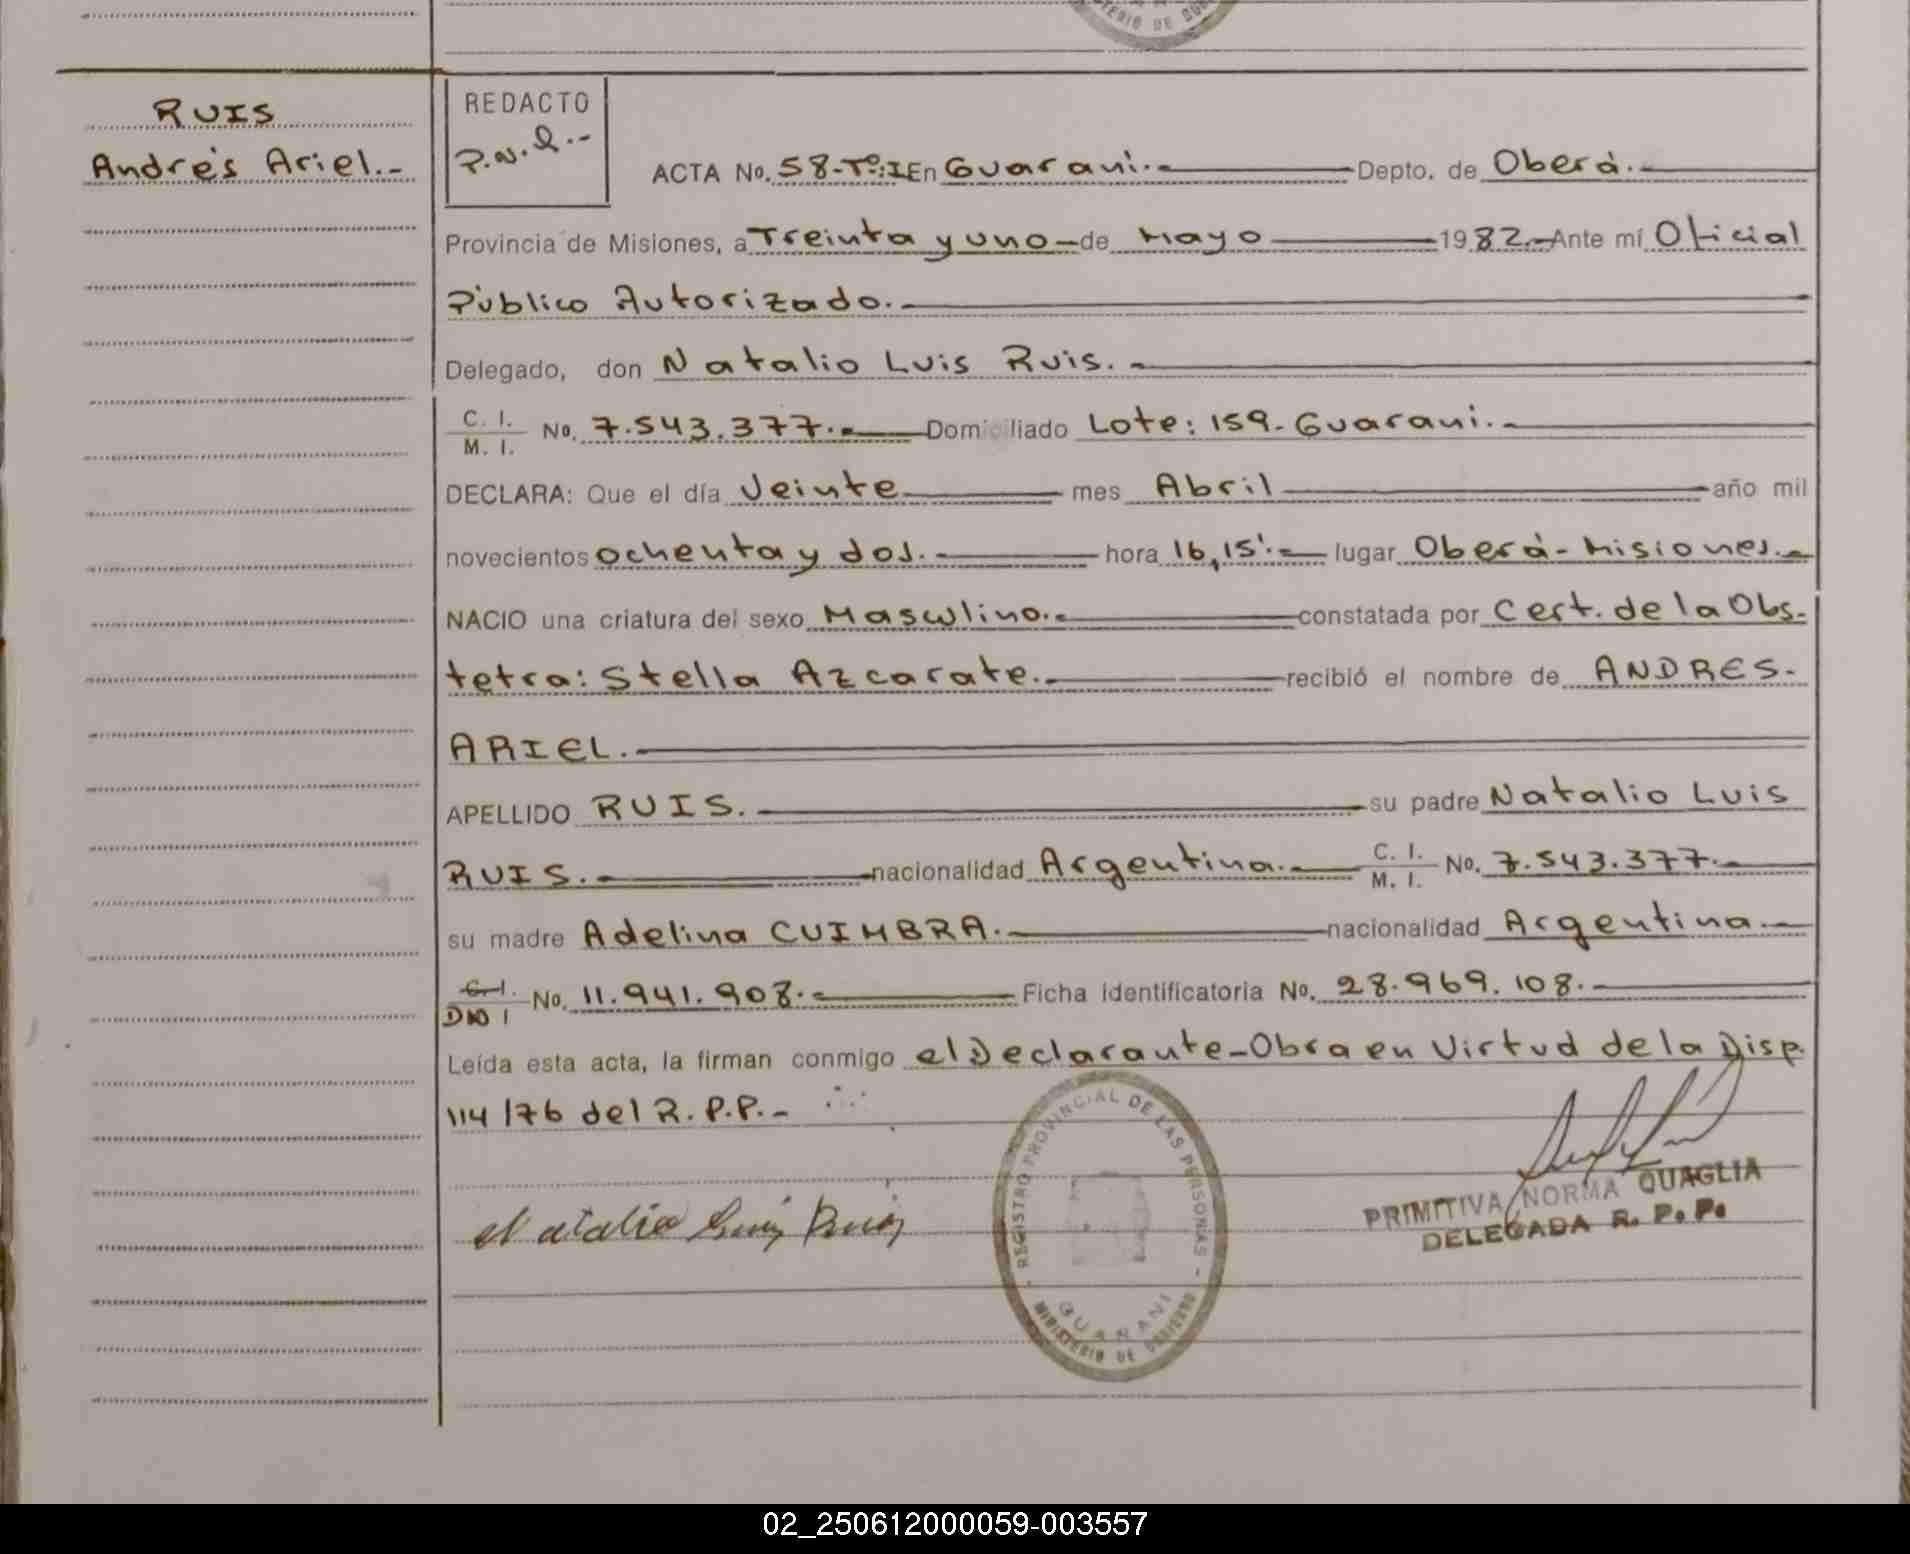 TERIO DE GOB
RUIS
Andrés Ariel.-
REDACTO
P.N.Q.-
ACTA No. 58-Tº:I En Guaraní.- Depto. de Oberá.-
Provincia de Misiones, a Treinta y uno- de Mayo 1982.- Ante mí Oficial
Público Autorizado.-
Delegado, don Natalio Luis Ruis.-
C. I.
M. I. No. 7.543.377.- Domiciliado Lote: 159- Guaraní.-
DECLARA: Que el día Veinte mes Abril año mil
novecientos ochenta y dos.- hora 16,15'.- lugar Oberá-Misiones.-
NACIO una criatura del sexo Masculino.- constatada por Cert. de la Obs-
tetra: Stella Azcarate.- recibió el nombre de ANDRES-
ARIEL.-
APELLIDO RUIS.- su padre Natalio Luis
RUIS.- nacionalidad Argentina.- C. I. M. I. No. 7.543.377.-
su madre Adelina CUIMBRA.- nacionalidad Argentina.-
C. I.
DNI No. 11.941.908.- Ficha identificatoria No. 28.969.108.-
Leída esta acta, la firman conmigo el Declarante-Obra en Virtud de la Disp.
114/76 del R.P.P.-
Natalio Luis Ruis
REGISTRO PROVINCIAL DE LAS PERSONAS
GUARANI
MINISTERIO DE GOBIERNO
PRIMITIVA NORMA QUAGLIA
DELEGADA R. P. P.
02_250612000059-003557